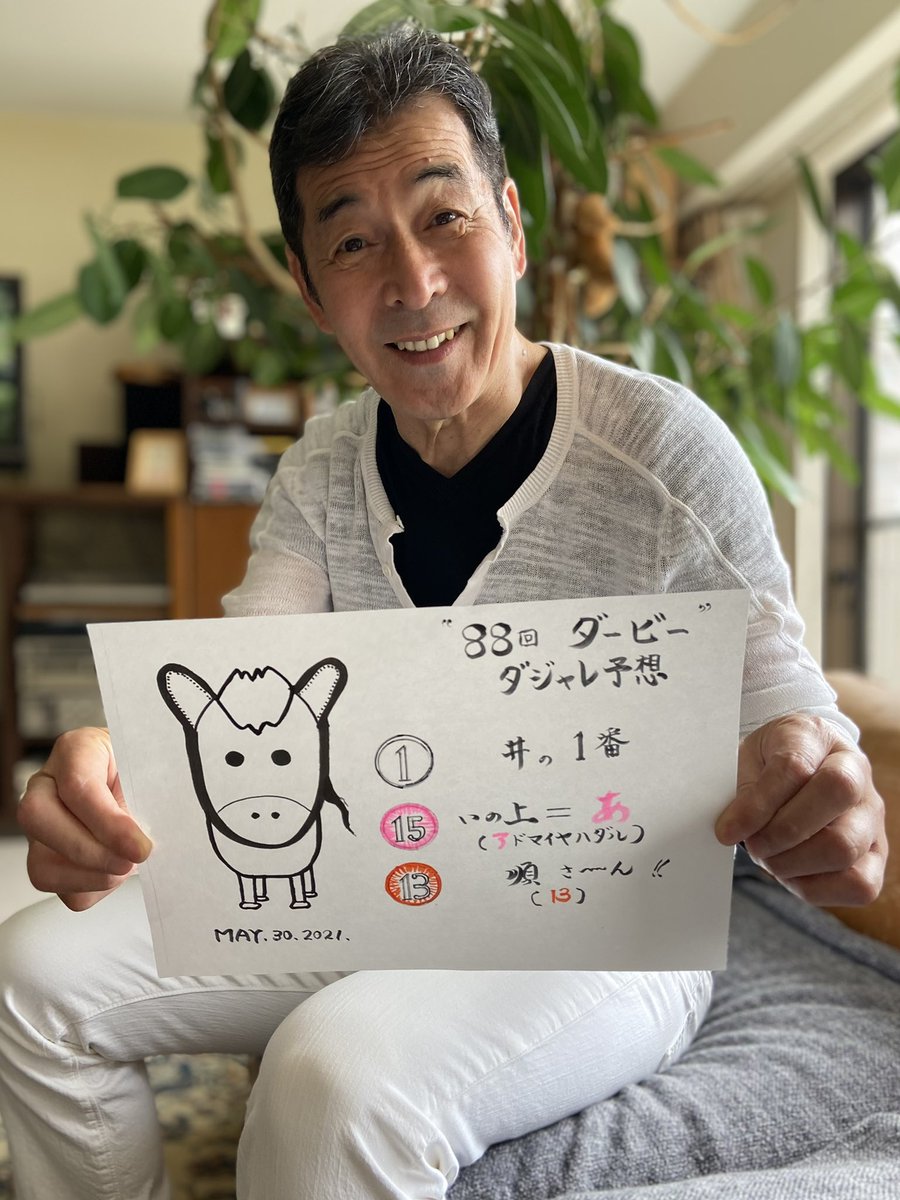 "88回 ダービー"
ダジャレ予想
① 井の1番
⑮ いの上=あ
(アドマイヤハダル)
⑬ 順さ〜ん!!
(13)
MAY.30.2021.